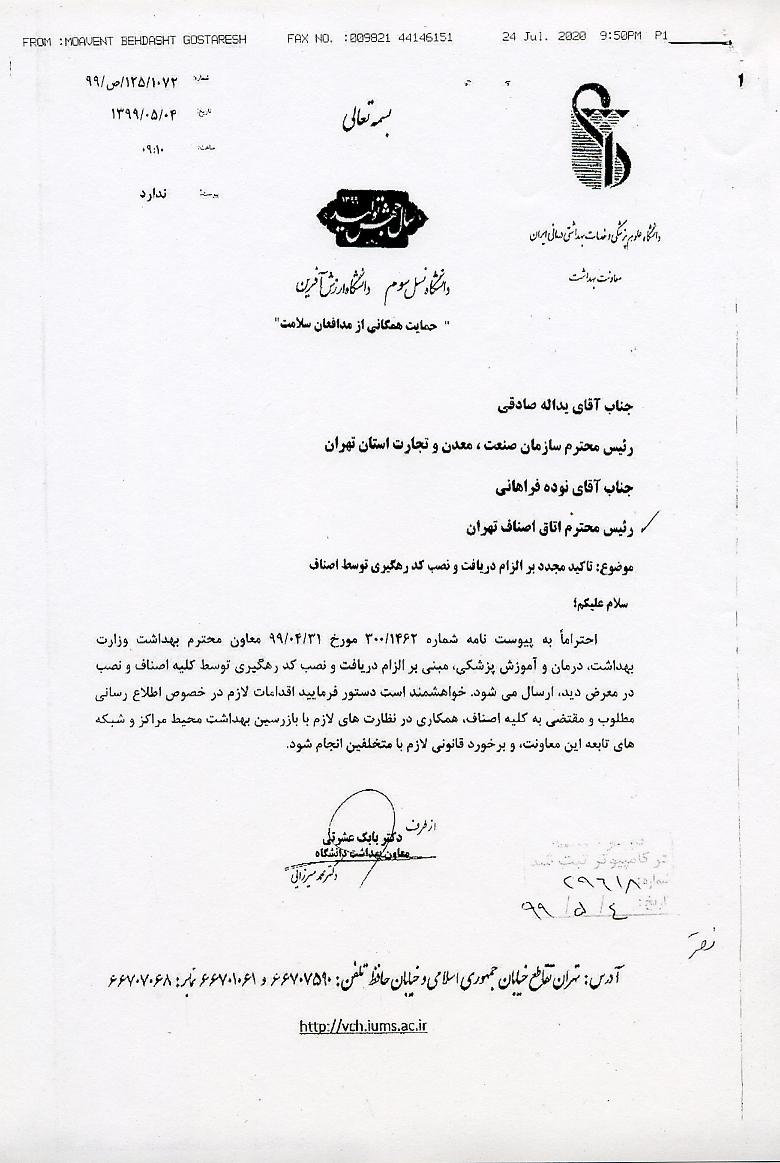 FROM :MOAVENT BEHDASHT GOSTARESH FAX NO. :009821 44146151 24 Jul. 2020 9:50PM P1
1
شماره: ۹۹/ص/۱۲۵/۱۰۷۲
تاریخ: ۱۳۹۹/۰۵/۰۴
ساعت: ۰۹:۱۰
پیوست: ندارد
بسمه تعالی
سال جهش تولید ۱۳۹۹
دانشگاه علوم پزشکی و خدمات بهداشتی درمانی ایران
معاونت بهداشت
دانشگاه نسل سوم دانشگاه ارزش آفرین
" حمایت همگانی از مدافعان سلامت"
جناب آقای یداله صادقی
رئیس محترم سازمان صنعت ، معدن و تجارت استان تهران
جناب آقای نوده فراهانی
رئیس محترم اتاق اصناف تهران
موضوع: تاکید مجدد بر الزام دریافت و نصب کد رهگیری توسط اصناف
سلام علیکم؛
احتراماً به پیوست نامه شماره ۳۰۰/۱۴۶۲ مورخ ۹۹/۰۴/۳۱ معاون محترم بهداشت وزارت
بهداشت، درمان و آموزش پزشکی، مبنی بر الزام دریافت و نصب کد رهگیری توسط کلیه اصناف و نصب
در معرض دید، ارسال می شود. خواهشمند است دستور فرمایید اقدامات لازم در خصوص اطلاع رسانی
مطلوب و مقتضی به کلیه اصناف، همکاری در نظارت های لازم با بازرسین بهداشت محیط مراکز و شبکه
های تابعه این معاونت، و برخورد قانونی لازم با متخلفین انجام شود.
از طرف
دکتر بابک عشرتی
معاون بهداشت دانشگاه
دکتر محمد میرزائی
در کامپیوتر ثبت شد
شماره: ۲۹۶۱۸
تاریخ: ۹۹/۵/۴
آدرس: تهران تقاطع خیابان جمهوری اسلامی و خیابان حافظ تلفن: ۶۶۷۰۷۵۹۰ و ۶۶۷۰۱۰۶۱ نمابر: ۶۶۷۰۷۰۶۸
http://vch.iums.ac.ir